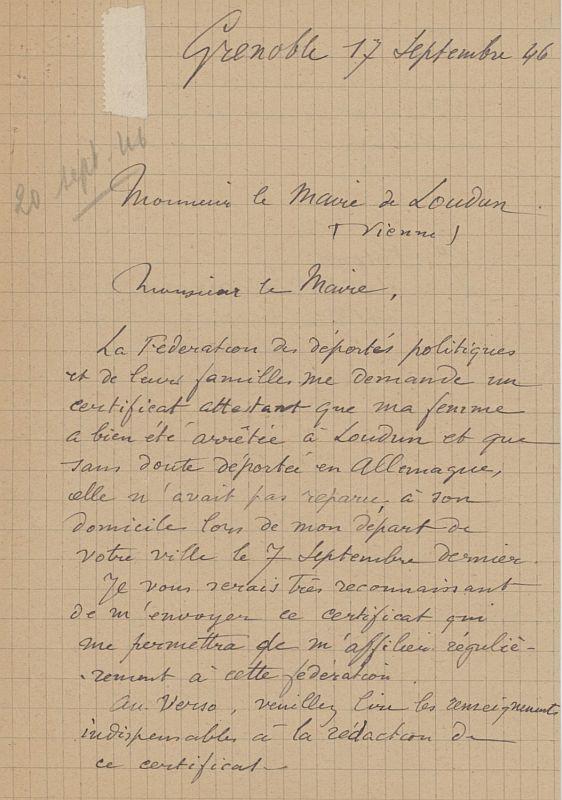 Grenoble 17 Septembre 46
20 sept. 46
Monsieur le Maire de Loudun.
(Vienne)
Monsieur le Maire,
La Féderation des déportés politiques
et de leurs familles me demande un
certificat attestant que ma femme
a bien été arrêtée à Loudun et que
sans doute déportée en Allemagne,
elle n'avait pas reparu à son
domicile lors de mon départ de
votre ville le 7 Septembre dernier.
Je vous serais très reconnaissant
de m'envoyer ce certificat qui
me permettra de m'affilier réguliè-
rement à cette fédération.
Au Verso, veuillez lire les renseignements
indispensables à la rédaction de
ce certificat